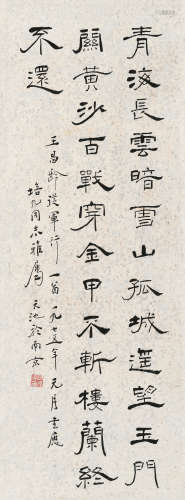 青海長雲暗雪山孤城遥望玉門
關黃沙百戰穿金甲不斬樓蘭終
不還
王昌齡從軍行一首一九七五年元月書應
培九同志雅屬 天池於南京